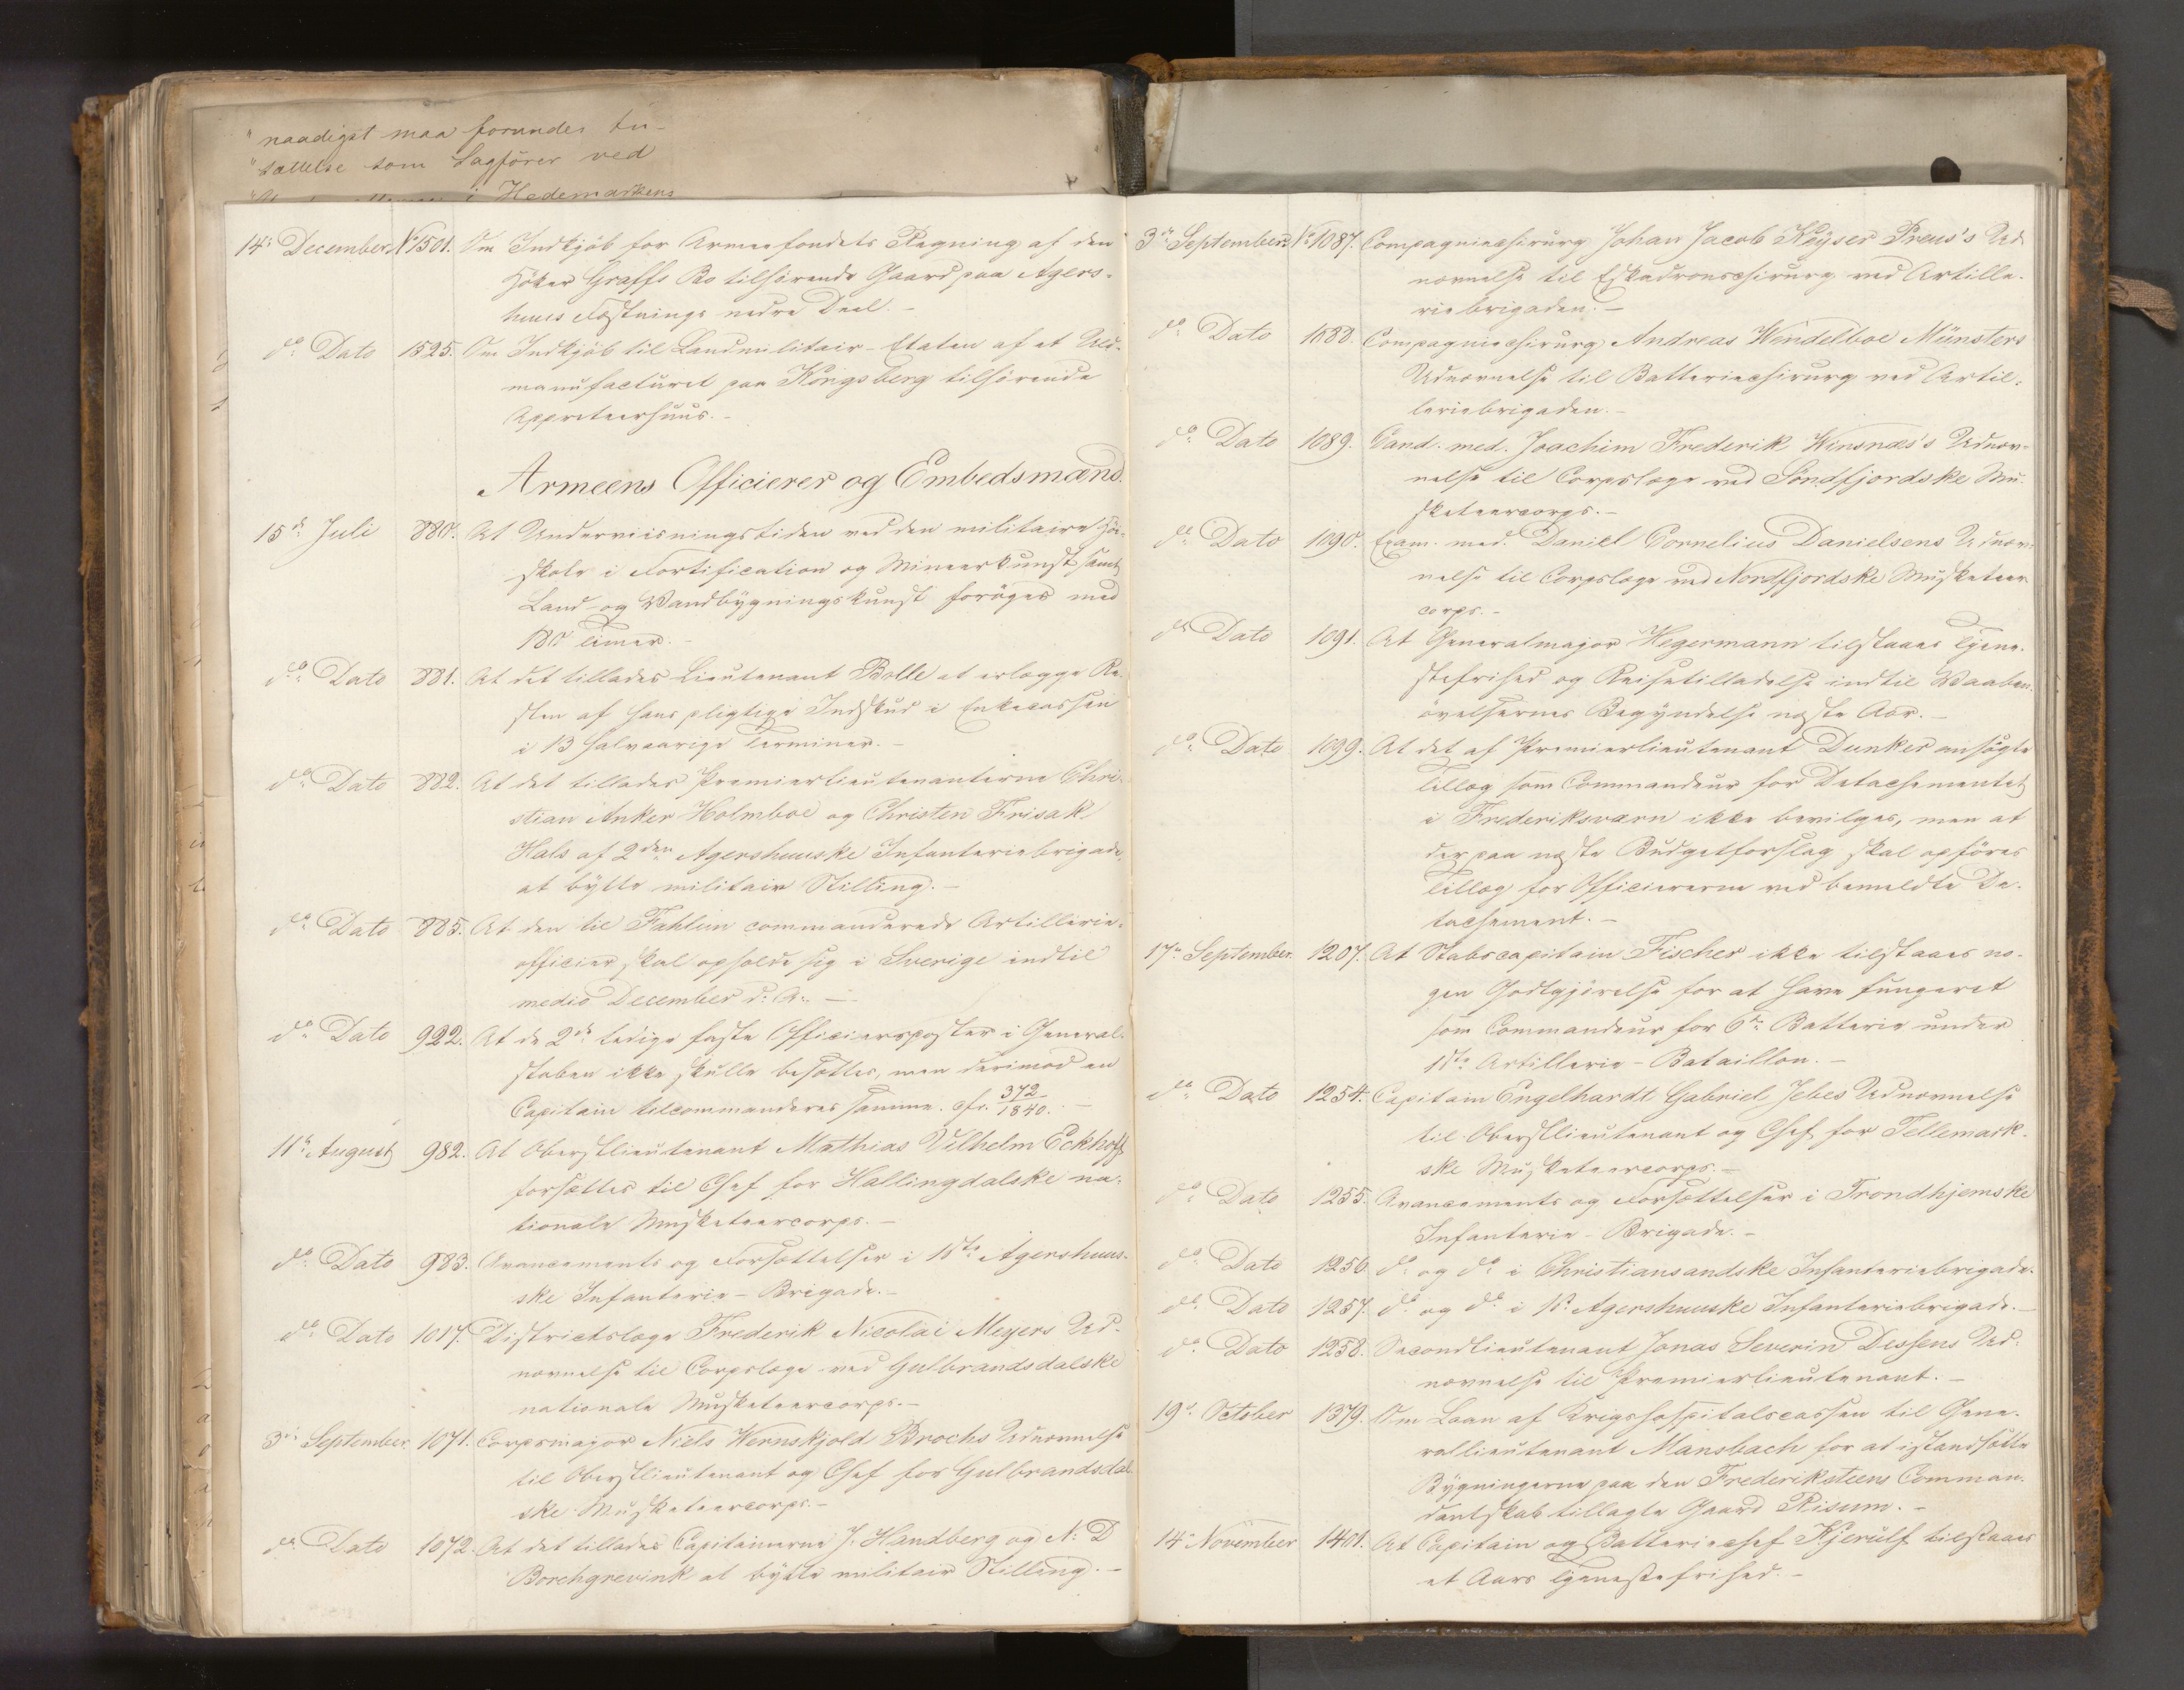 "naadigst maa forundes An-
"sættelse som Sagfører ved
i Hedemarkens
14de December No 1501. Om Indkjøb for Armeefondets Regning af den
Høker Graffs Bo tilhørende Gaard paa Agers-
huus Fæstnings nedre Deel. -
do Dato 1525. Om Indkjøb til Landmilitair-Etaten af et Uld-
manufacturet paa Kongsberg tilhørende
Appreteerhuus. -
Armeens Officierer og Embedsmænd.
15de Juli 880. At Underviisningstiden ved den militaire Høi-
skole i Fortification og Mineerkunst samt
Land- og Vandbygningskunst forøges med
180 Timer. -
do Dato 881. At det tillades Lieutenant Bolle at erlægge Re-
sten af hans pligtige Indskud i Enkecassen
i 13 halvaarige Terminer. -
do Dato 882. At det tillades Premierlieutenanterne Chri-
stian Anker Holmboe og Christen Frisak
Hals af 2den Agershuuske Infanteriebrigade,
at bytte militair Stilling. -
do Dato 885. At den til Fahlun commanderede Artillerie-
officier skal opholde sig i Sverige indtil
medio December d. A. -
do Dato 922. At de 2de ledige faste Officiersposter i General-
staben ikke skulle besættes, men derimod en
Capitain tilcommanderes samme. cfr. 372/1840. -
11te August 982. At Oberstlieutenant Mathias Vilhelm Eckhoff
forsættes til Chef for Hallingdalske na-
tionale Musketeercorps. -
do Dato 983. Avancements og Forsættelser i 1ste Agershuus-
ske Infanterie-Brigade. -
do Dato 1017. Districtslæge Frederik Nicolai Meyers Ud-
nævnelse til Corpslæge ved Gulbrandsdalske
nationale Musketeercorps. -
3die September. 1071. Corpsmajor Niels Wernskjold Brochs Udnævnelse
til Oberstlieutenant og Chef for Gulbrandsdal-
ske Musketeercorps. -
do Dato 1072. At det tillades Capitainerne J. Handberg og N. D
Borchgrevink at bytte militair Stilling. -
3die September. No 1087. Compagniechirurg Johan Jacob Keyser Preus's Ud
nævnelse til Eskadronschirurg ved Artille-
riebrigaden. -
do Dato 1088. Compagniechirurg Andreas Windelboe Münsters
Udnævnelse til Batteriechirurg ved Artil-
leriebrigaden. -
do Dato 1089. Cand. med. Joachim Frederik Winsnæs's Udnæv-
nelse til Corpslæge ved Søndfjordske Mu-
sketeercorps. -
do Dato 1090. Exam. med. Daniel Cornelius Danielsens Udnæv-
nelse til Corpslæge ved Nordfjordske Musketeer
corps. -
do Dato 1091. At Generalmajor Hegermann tilstaaes Tjene-
stefrihed og Reisetilladelse indtil Vaaben-
øvelsernes Begyndelse næste Aar. -
do Dato 1099. At det af Premierlieutenant Dunker ansøgte
Tillæg som Commandeur for Detachementet
i Frederiksværn ikke bevilges, men at
der paa næste Budgetforslag skal opføres
Tillæg for Officiererne ved bemeldte De-
tachement. -
17de September. 1207. At Stabscapitain Fischer ikke tilstaaes no-
gen Godtgjørelse for at have fungeret
som Commandeur for 6te Batterie under
1ste Artillerie-Bataillon. -
do Dato 1254. Capitain Engelhardt Gabriel Jebes Udnævnelse
til Oberstlieutenant og Chef for Tellemark-
ske Musketeercorps. -
do Dato 1255. Avancements og Forsættelser i Trondhjemske
Infanterie-Brigade. -
do Dato 1256. do og do i Christiansandske Infanteriebrigade.
do Dato 1257. do og do i 1ste Agershuuske Infanteriebrigade. -
do Dato 1258. Secondlieutenant Jonas Severin Dessens Ud-
nævnelse til Premierlieutenant. -
19de October 1379. Om Laan af Krigshospitalscassen til Gene-
rallieutenant Mansbach for at istandsætte
Bygningerne paa den Frederiksteens Comman-
dantskab tillagte Gaard Risum. -
14de November 1401. At Capitain og Batteriechef Kjerulf tilstaaes
et Aars Tjenestefrihed. -